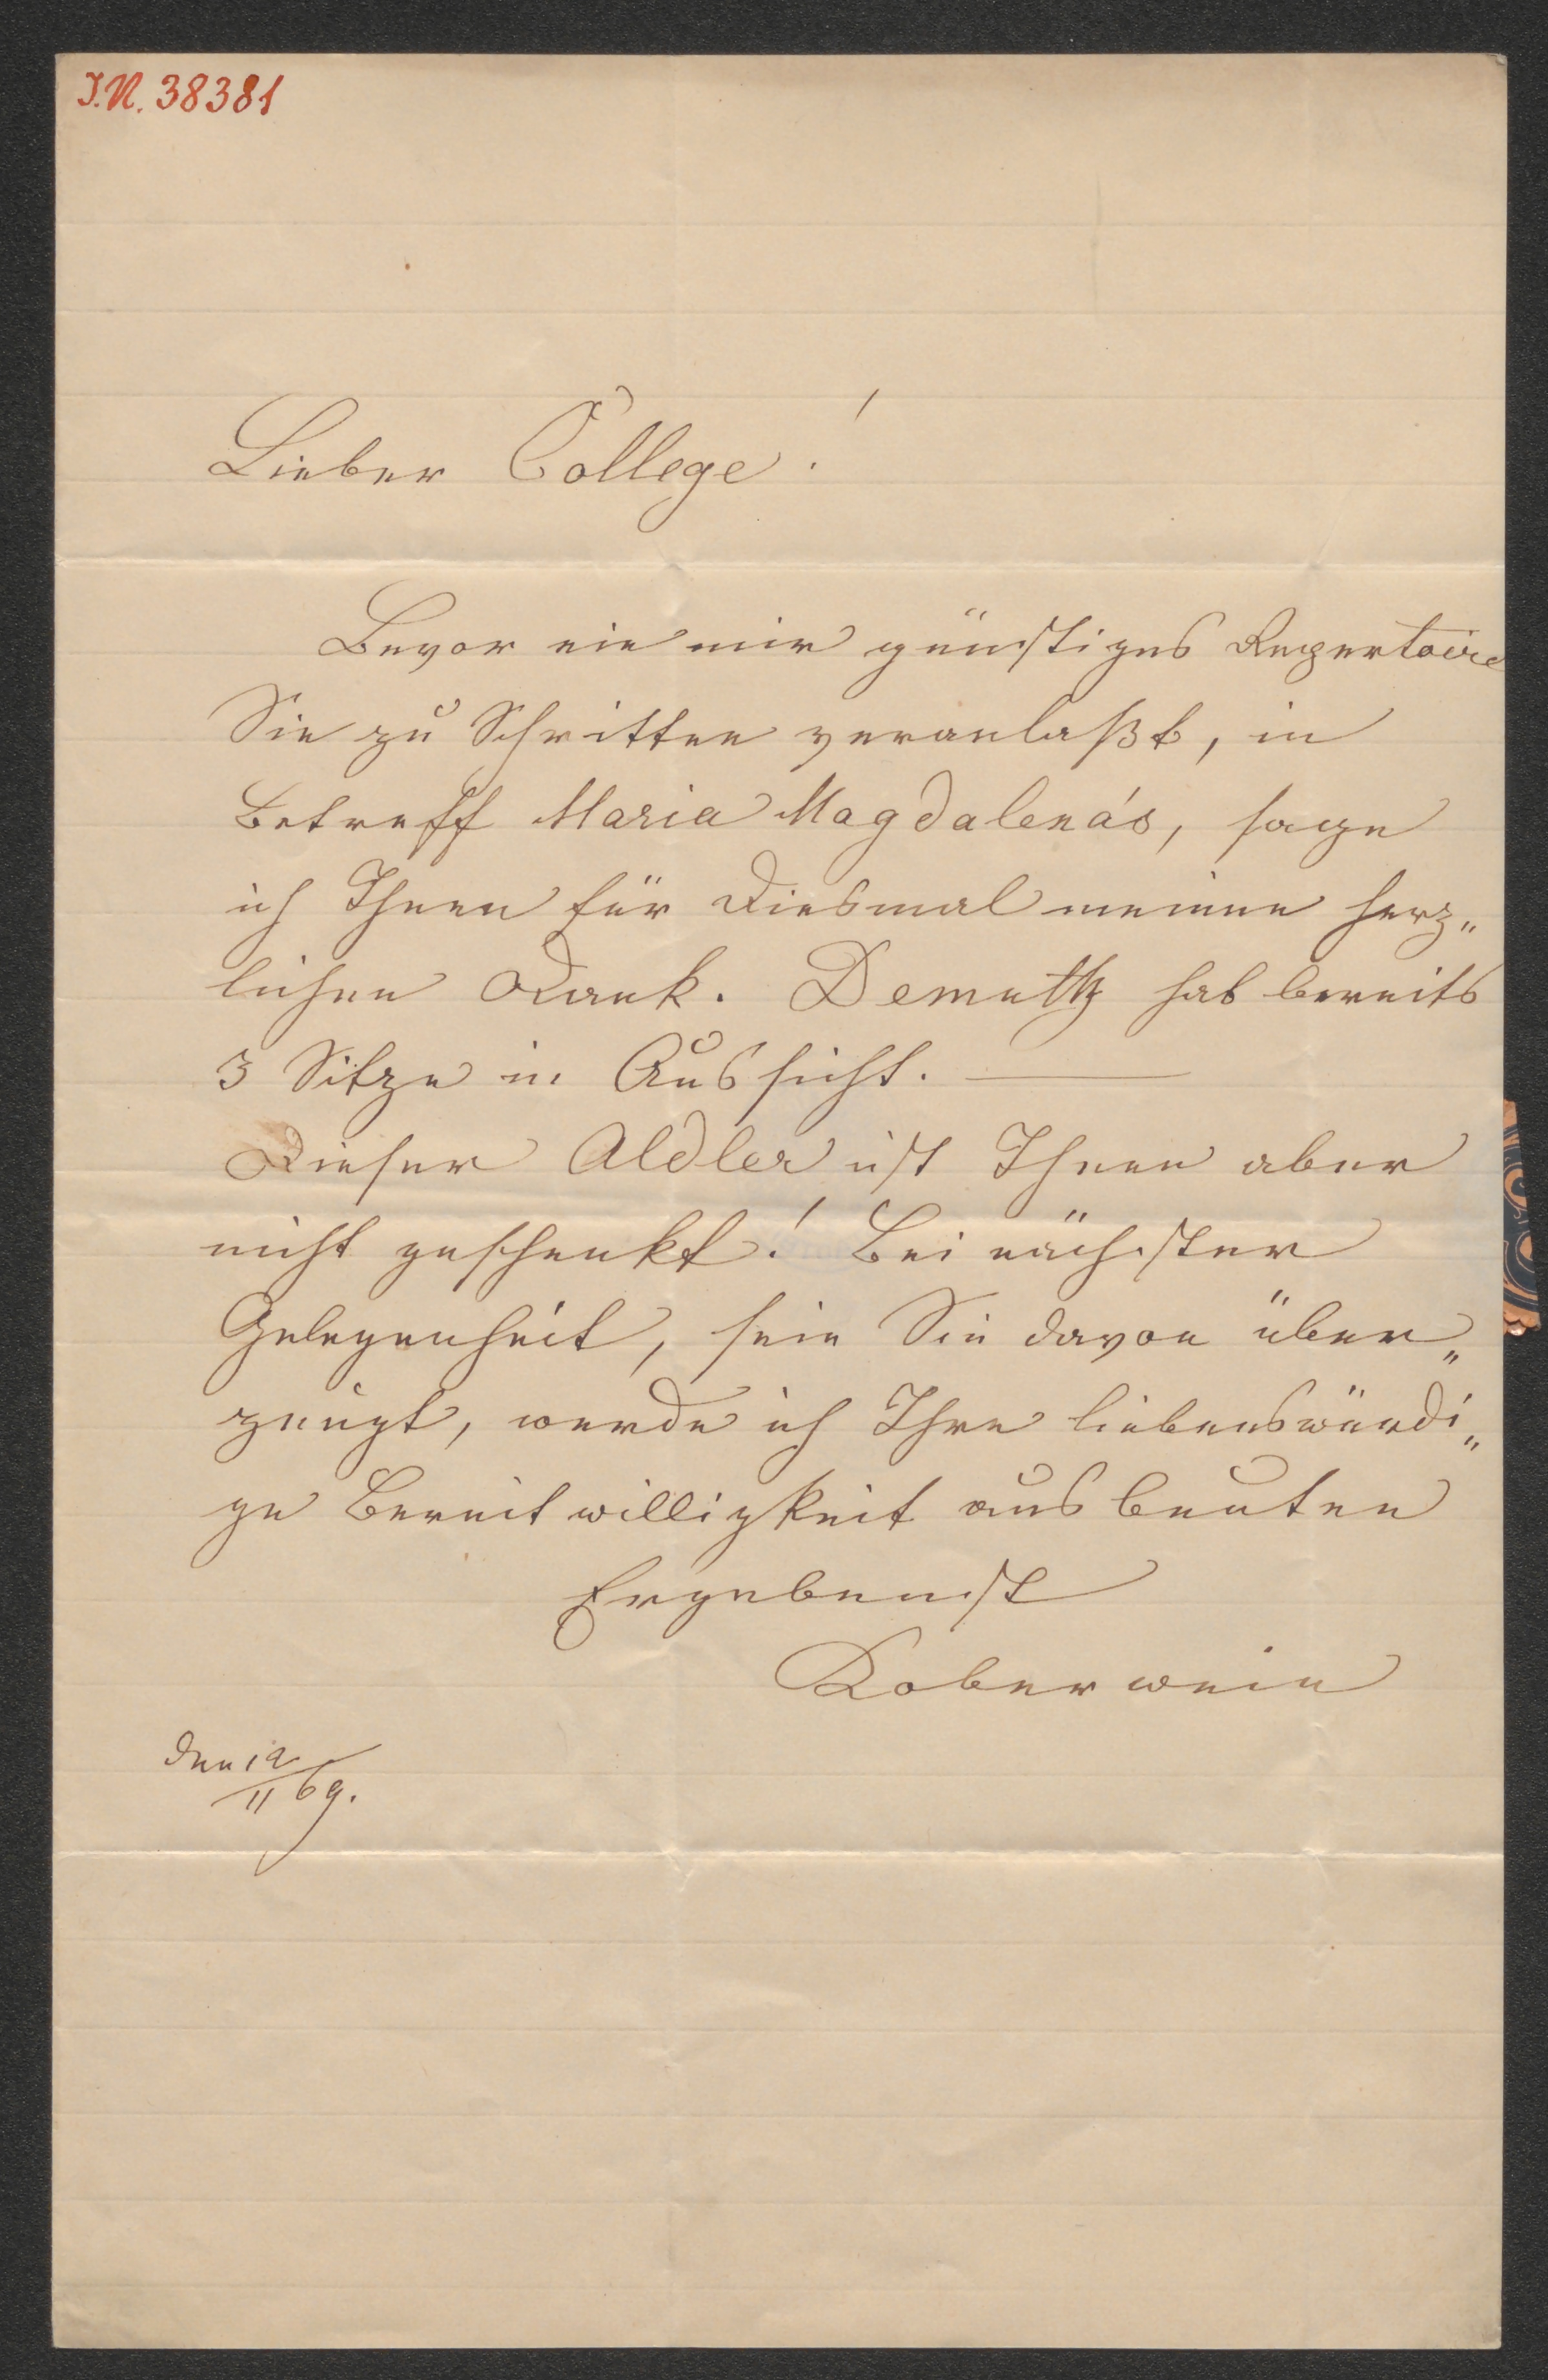 I.N. 38381
Lieber College!
Bevor ein mir günstiges Repertoire
Sie zu Schritten veranlaßt, in
Betreff Maria Magdalena's, sage
ich Ihnen für diesmal meinen herz„
lichen Dank. Demuth hat bereits
3 Sitze in Aussicht. —
Dieser Aldler ist Ihnen aber
nicht geschenkt! Bei nächster
Gelegenheit, sein Sie davon über„
zeugt, werde ich Ihre liebenswürdi„
ge Bereitwilligkeit ausbeuten
Ergebenst
Koberwein
den 12/11 69.